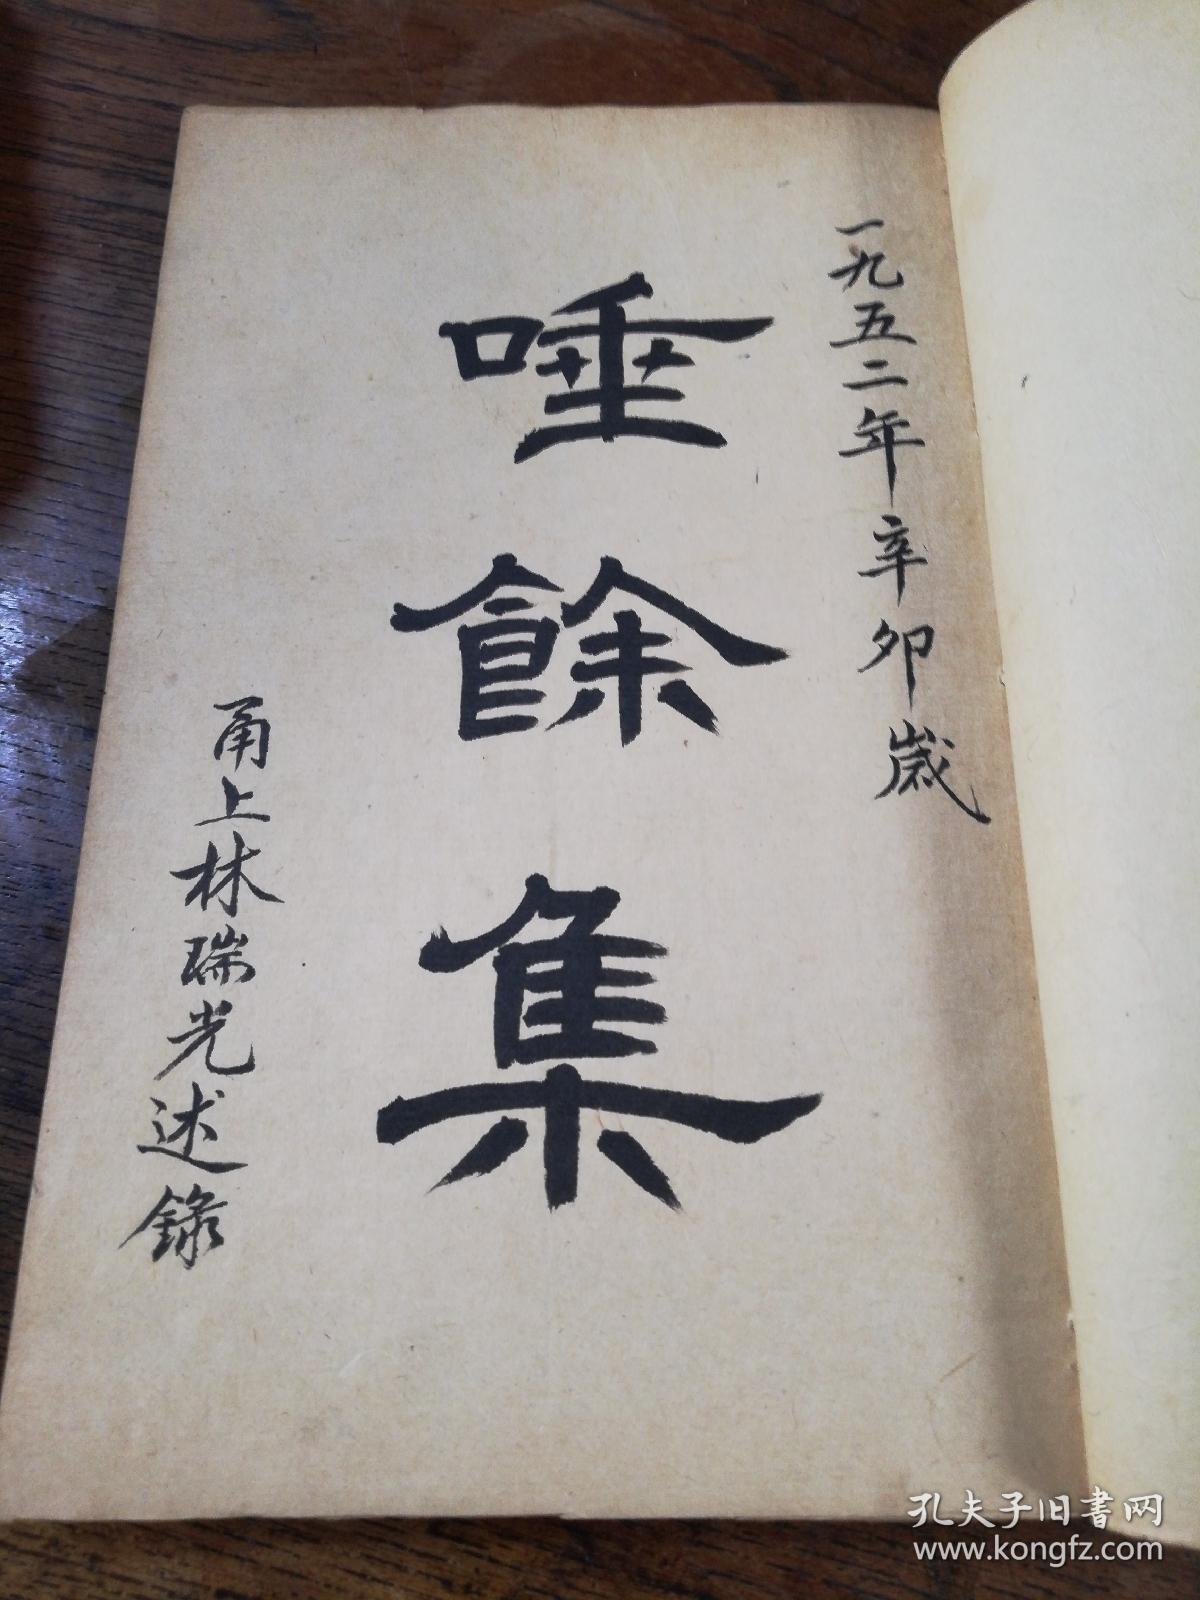 一九五二年辛卯歲
唾餘集
甬上林瑞光述錄
孔夫子旧書网
www.kongfz.com